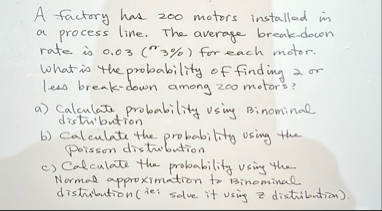 A factory has 200 motors installed in
a process line. The average break-down
rate is 0.03 (~3%) for each motor.
What is the probability of finding 2 or
less break-down among 200 motors?
a) Calculate probability using Binominal
distribution
b) Calculate the probability using the
Poisson distribution
c) Calculate the probability using the
Normal approximation to Binominal
distribution (ie: solve it using Z distribution).